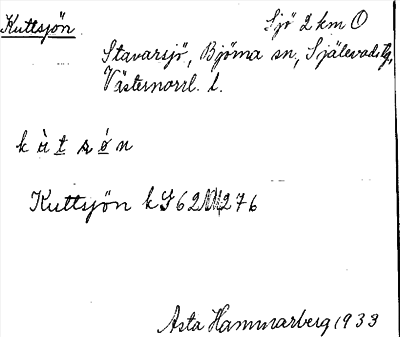 Kuttsjön. Sjö 2 km O
Stavarsjö, Björna sn, Själevads tg,
Västernorrl. l.
k ù t s ǿ n
Kuttsjön kG 62 276
Asta Hammarberg 1933